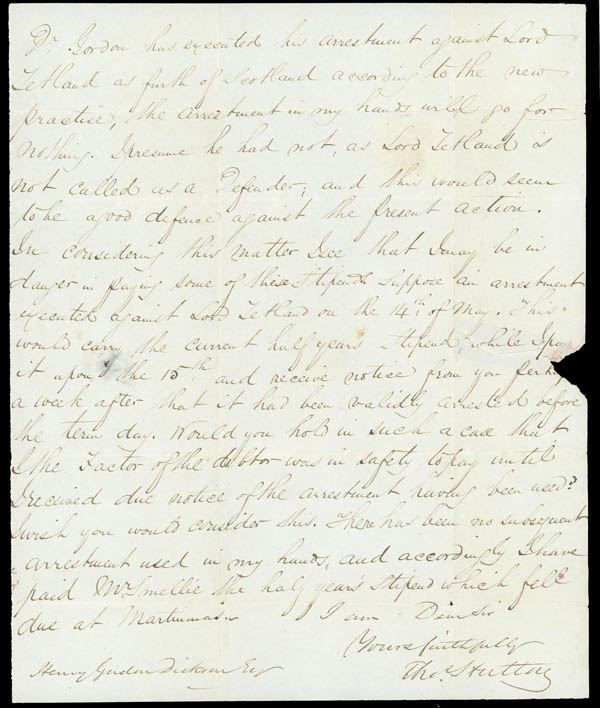 Dr. Gordon has executed his arrestment against Lord
Zetland as furth of Scotland according to the new
practise, the arrestment in my hands will go for
nothing. I presume he had not, as Lord Zetland is
not called as a Defender; and this would seem
to be a good defence against the present action.
In considering this matter I see that I may be in
danger in paying some of these Stipends. Suppose an arrestment
executed against Lord Zetland on the 14th of May. This
would carry the current half years stipend, while I pay
it upon the 15th and receive notice from you
a week after that it had been validly arrested before
the term day. Would you hold in such a case that
I the Factor of the debtor was in safety to pay until
I received due notice of the arrestment having been used?
I wish you would consider this. There has been no subsequent
arrestment used in my hands, and accordingly I have
paid Mr Smellie the half year's Stipend which fell
due at Martinmas. I am Dear Sir
Yours faithfully
Henry Gordon Dickson Esq Thos. Hutton